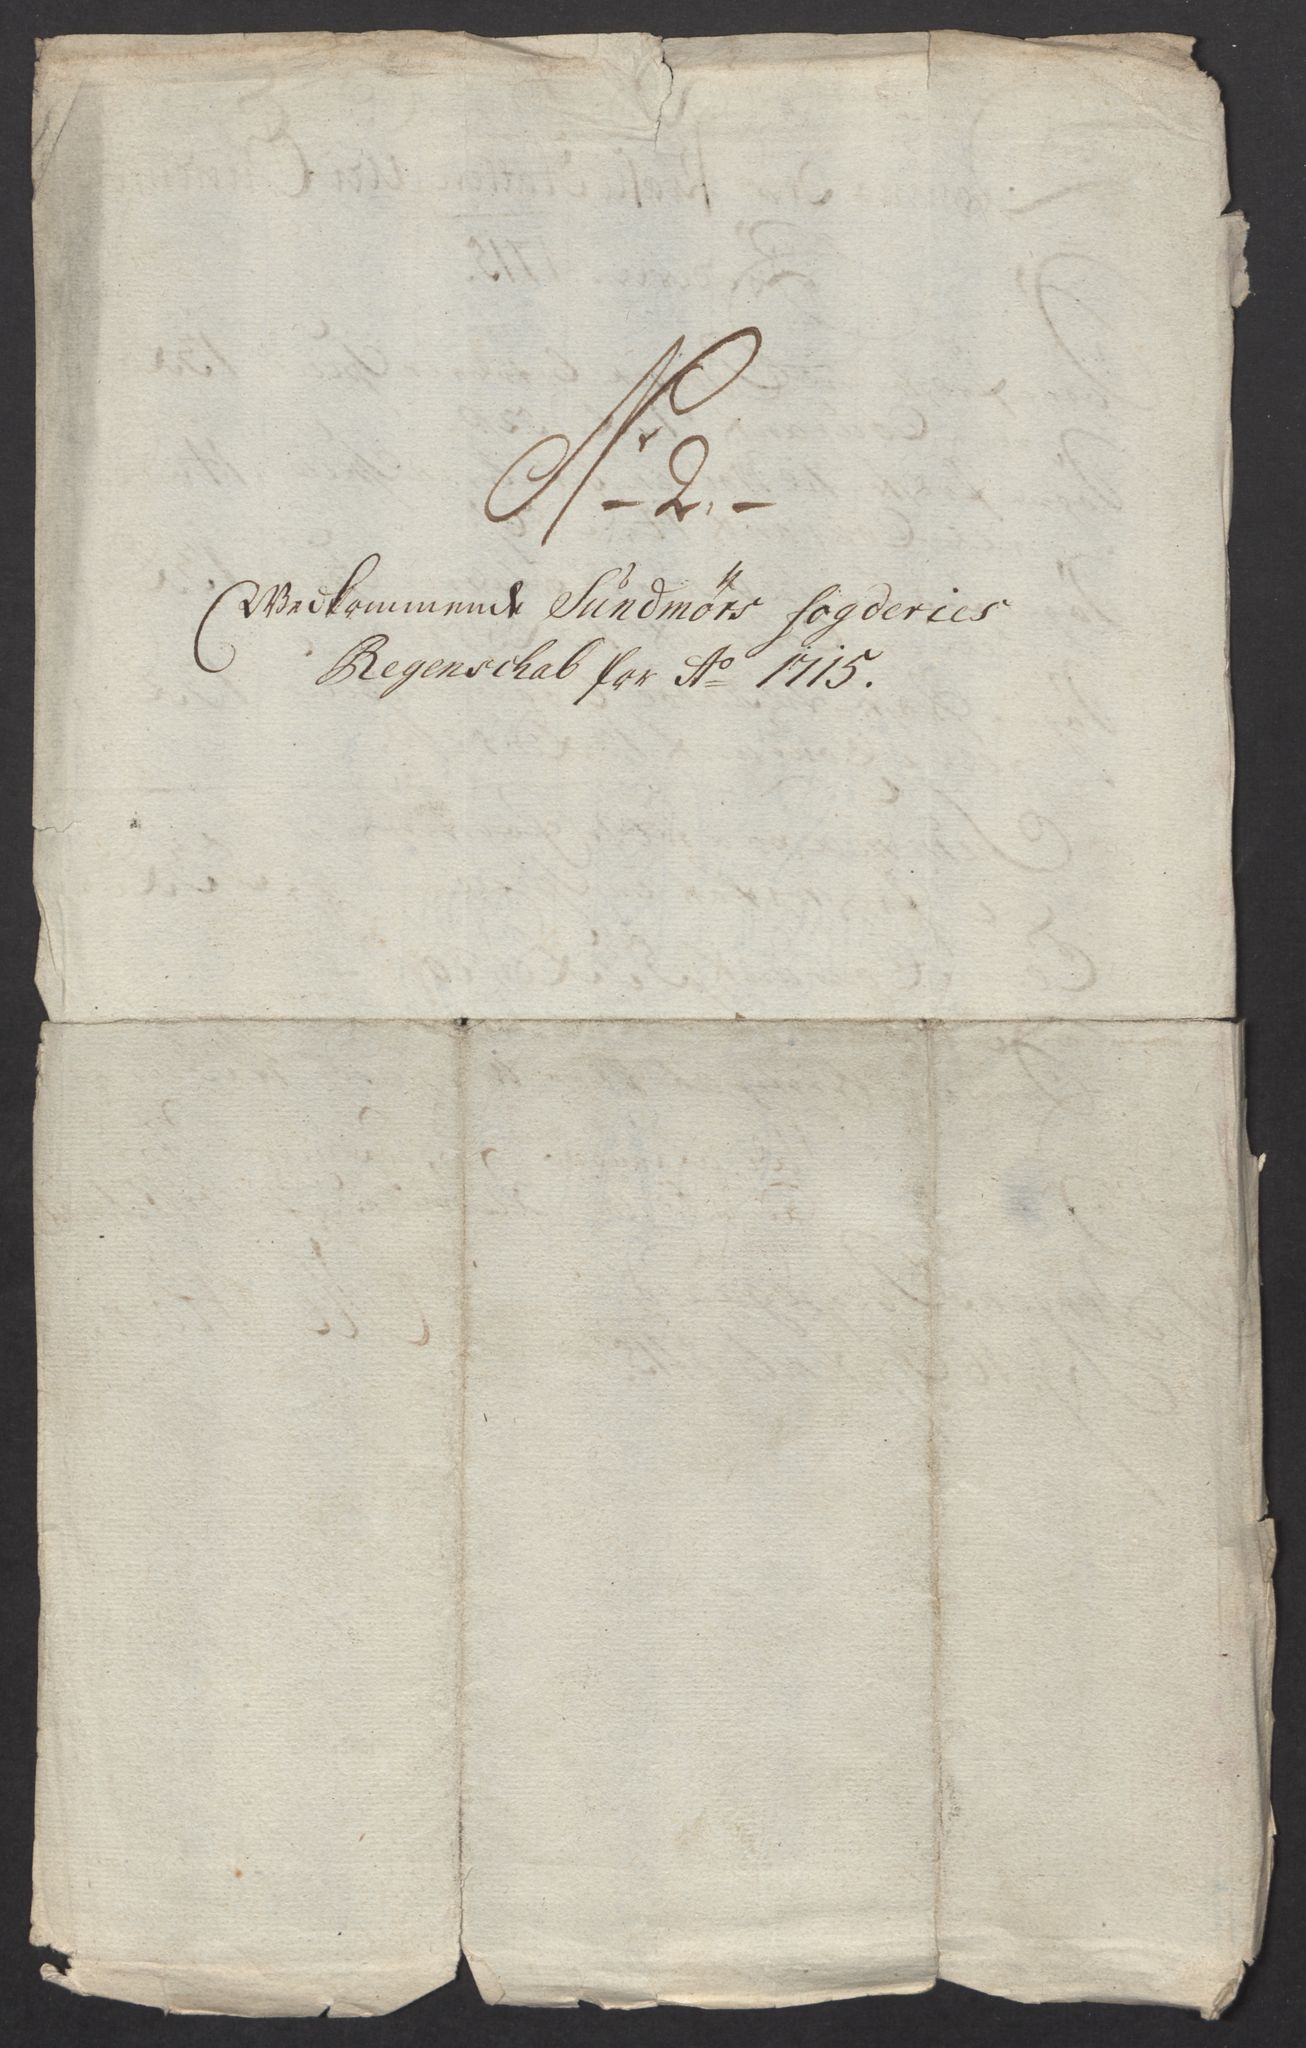 Nr
- 2. -
Vedkommende Sundmörs fogderies
Regenschab for Ao 1715.